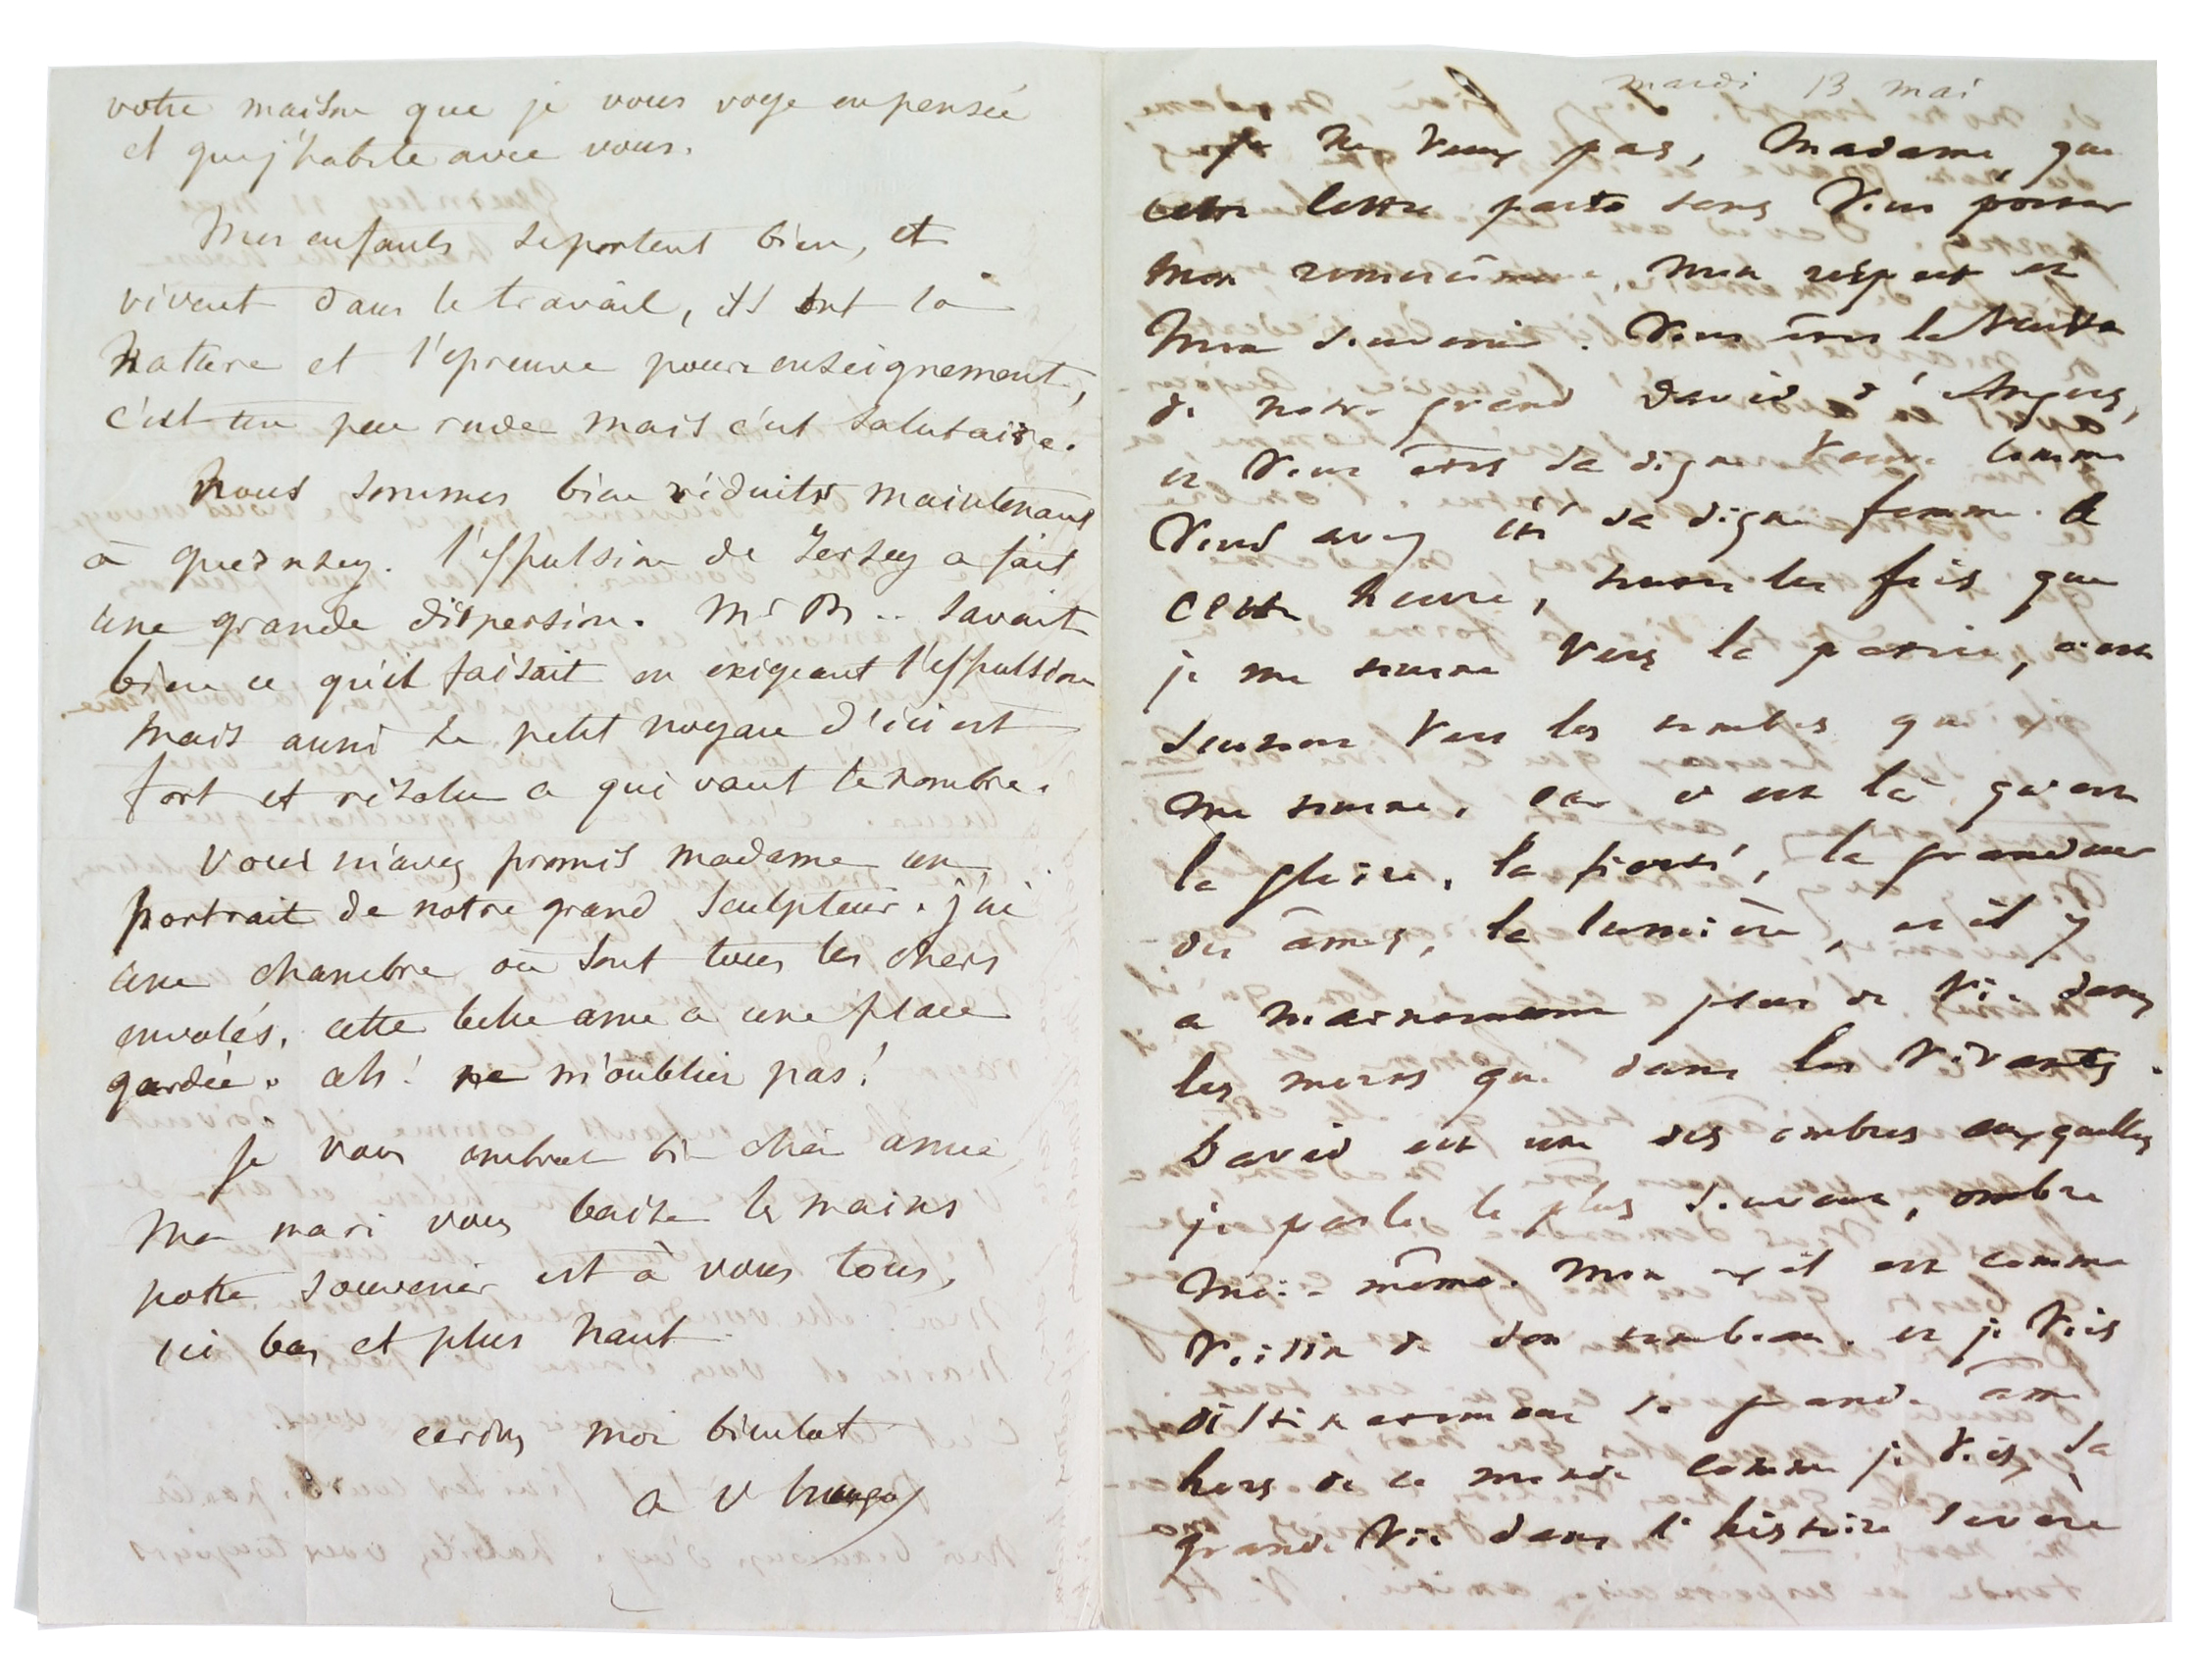 votre maison que je vous voye en pensée
et que j'habite avec vous.
Mes enfants se portent bien, et
vivent dans le travail, ils ont la
nature et l'epreuve pour enseignement,
c'est un peu rude mais c'est salutaire.
Nous sommes bien réduits maintenant
à guernsey. l'expulsion de Jersey a fait
une grande dispersion. Mr B .. savait
bien ce qu'il faisait en exigeant l'expulsion
mais aussi le petit noyau d'ici est
fort et résolu ce qui vaut le nombre.
Vous m'avez promis madame un
portrait de notre grand sculpteur. j'ai
une chambre où sont tous les chers
envolés. cette belle ame a une place
gardée. ah! ne m'oubliez pas!
Je vous embrasse bien chère amie
Mon mari vous baise les mains
notre souvenir est à vous tous,
ici bas et plus haut
ecrivez moi bientot
a v hugo
mardi 13 mai
Je ne veux pas, Madame, que
cette lettre parte sans vous porter
mon remerciment, mon respect et
mon souvenir. Vous êtes la veuve
de notre grand David d'Angers,
et vous êtes sa digne veuve comme
vous avez été sa digne femme. A
cette heure, toutes les fois que
je me tourne vers la patrie, c'est
souvent vers les tombes que je
me tourne, car c'est là qu'est
la gloire, la fierté, la grandeur
des âmes, la lumière, et il y
a maintenant plus de vie dans
les morts que dans les vivants.
David est une des ombres auxquelles
je parle le plus souvent, ombre
moi-même. Mon exil est comme
voisin de son tombeau. et je vois
distinctement sa grande âme
hors de ce monde comme je vois sa
grande vie dans l'histoire sévère